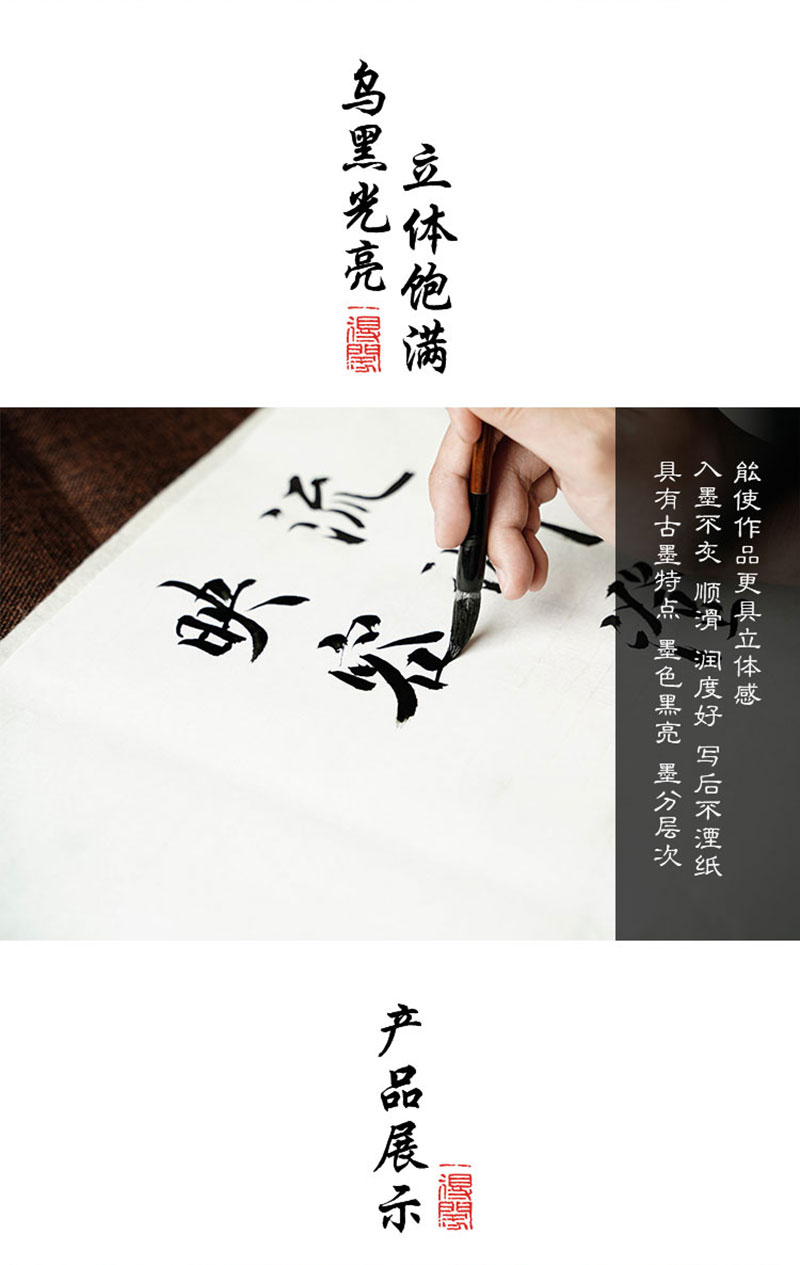 乌黑光亮
一得閣
立体饱满
流
映
具有古墨特点 墨色黑亮 墨分层次
入墨不灰 顺滑 润度好 写后不湮纸
能使作品更具立体感
产品展示
一得閣